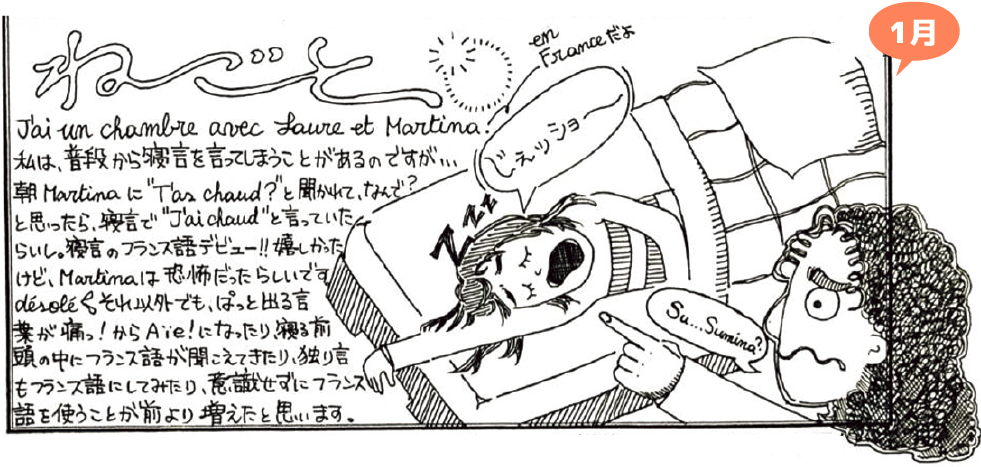 1月
ねごと
en
Franceだよ
J'ai un chambre avec Laure et Martina!
私は、普段から寝言を言ってしまうことがあるのですが…
朝Martinaに"T'as chaud?"と聞かれて、なんで?
と思ったら、寝言で"J'ai chaud"と言っていた
らいし。寝言のフランス語デビュー!!嬉しかった
けど、Martinaは恐怖だったらしいです
désolé それ以外でも、ぱっと出る言
葉が痛っ!からAïe!になったり、寝る前
頭の中にフランス語が聞こえてきたり、独り言
もフランス語にしてみたり、意識せずにフランス
語を使うことが前より増えたと思います。
じぇッショー
zzz
Su...Sumina?